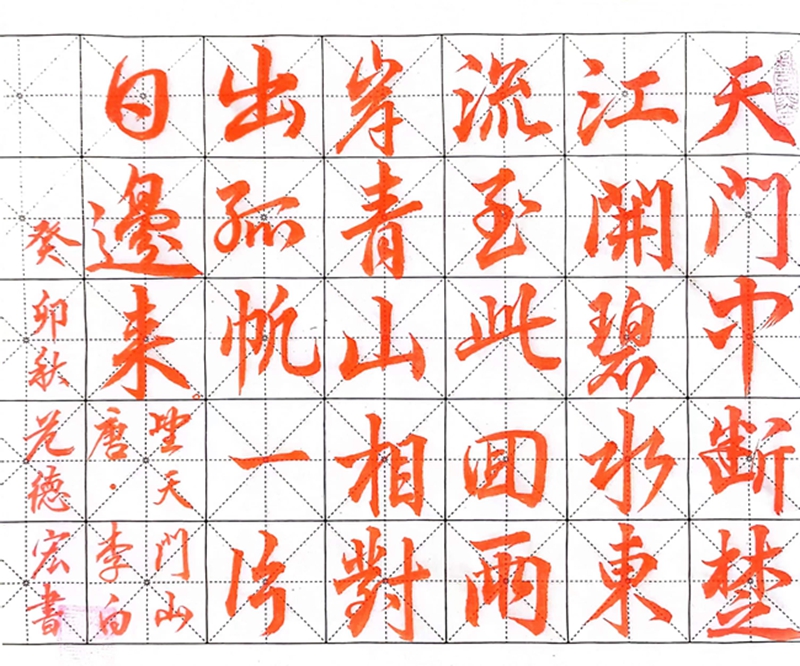 天門中斷楚
江開碧水東
流至此囬兩
岸青山相對
出孤帆一片
日邊来
望天門山
唐·李白
癸卯秋范德宏書